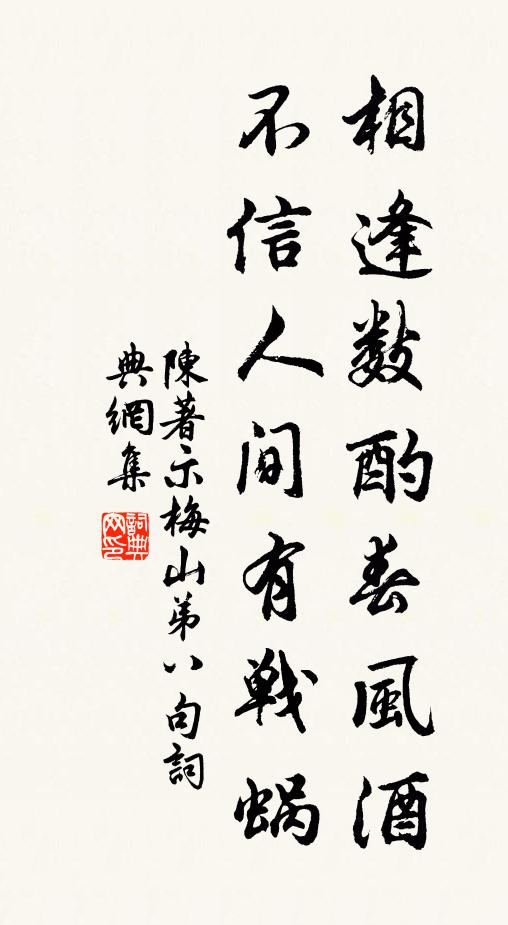 相逢数酌春風酒
不信人间有戦蜗
陳著示梅山弟八句詞
典網集
詞典
网印